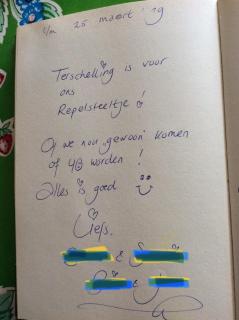 t/m 25 maart '19
Terschelling is voor
ons
Repelsteeltje!
Of we nou "gewoon" komen
of 40 worden!
Alles is goed
Liefs.
&
&